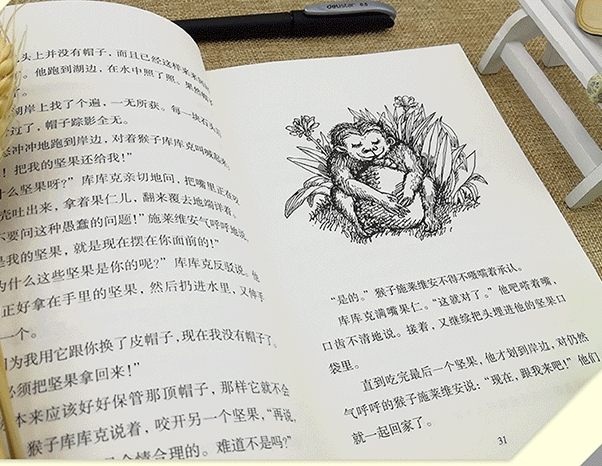 头上并没有帽子，而且已经这样来来回回
。他跑到湖边，在水中照了照。果然帽子
了。
湖岸上找了个遍，一无所获。每一块石头
过了，帽子踪影全无。
怒冲冲地跑到岸边，对着猴子库库克叫喊起来
！把我的坚果还给我！”
什么坚果呀？”库库克亲切地问，把嘴里正在咬
壳吐出来，拿着果仁儿，翻来覆去地端详着。
不要问这种愚蠢的问题！”施莱维安气呼呼地说
是我的坚果，就是现在摆在你面前的！”
为什么这些坚果是你的呢？”库库克反驳说。他
正好拿在手里的坚果，然后扔进水里，又伸手
一个。
因为我用它跟你换了皮帽子，现在我没有帽子了。
必须把坚果拿回来！”
本来应该好好保管那顶帽子，那样它就不会
猴子库库克说着，咬开另一个坚果，“再说，
合情合理的。难道不是吗？”
“是的。”猴子施莱维安不得不嘟囔着承认。
库库克满嘴果仁。“这就对了。”他吧嗒着嘴，
口齿不清地说。接着，又继续把头埋进他的坚果口
袋里。
直到吃完最后一个坚果，他才划到岸边，对仍然
气呼呼的猴子施莱维安说：“现在，跟我来吧！”他们
就一起回家了。
31